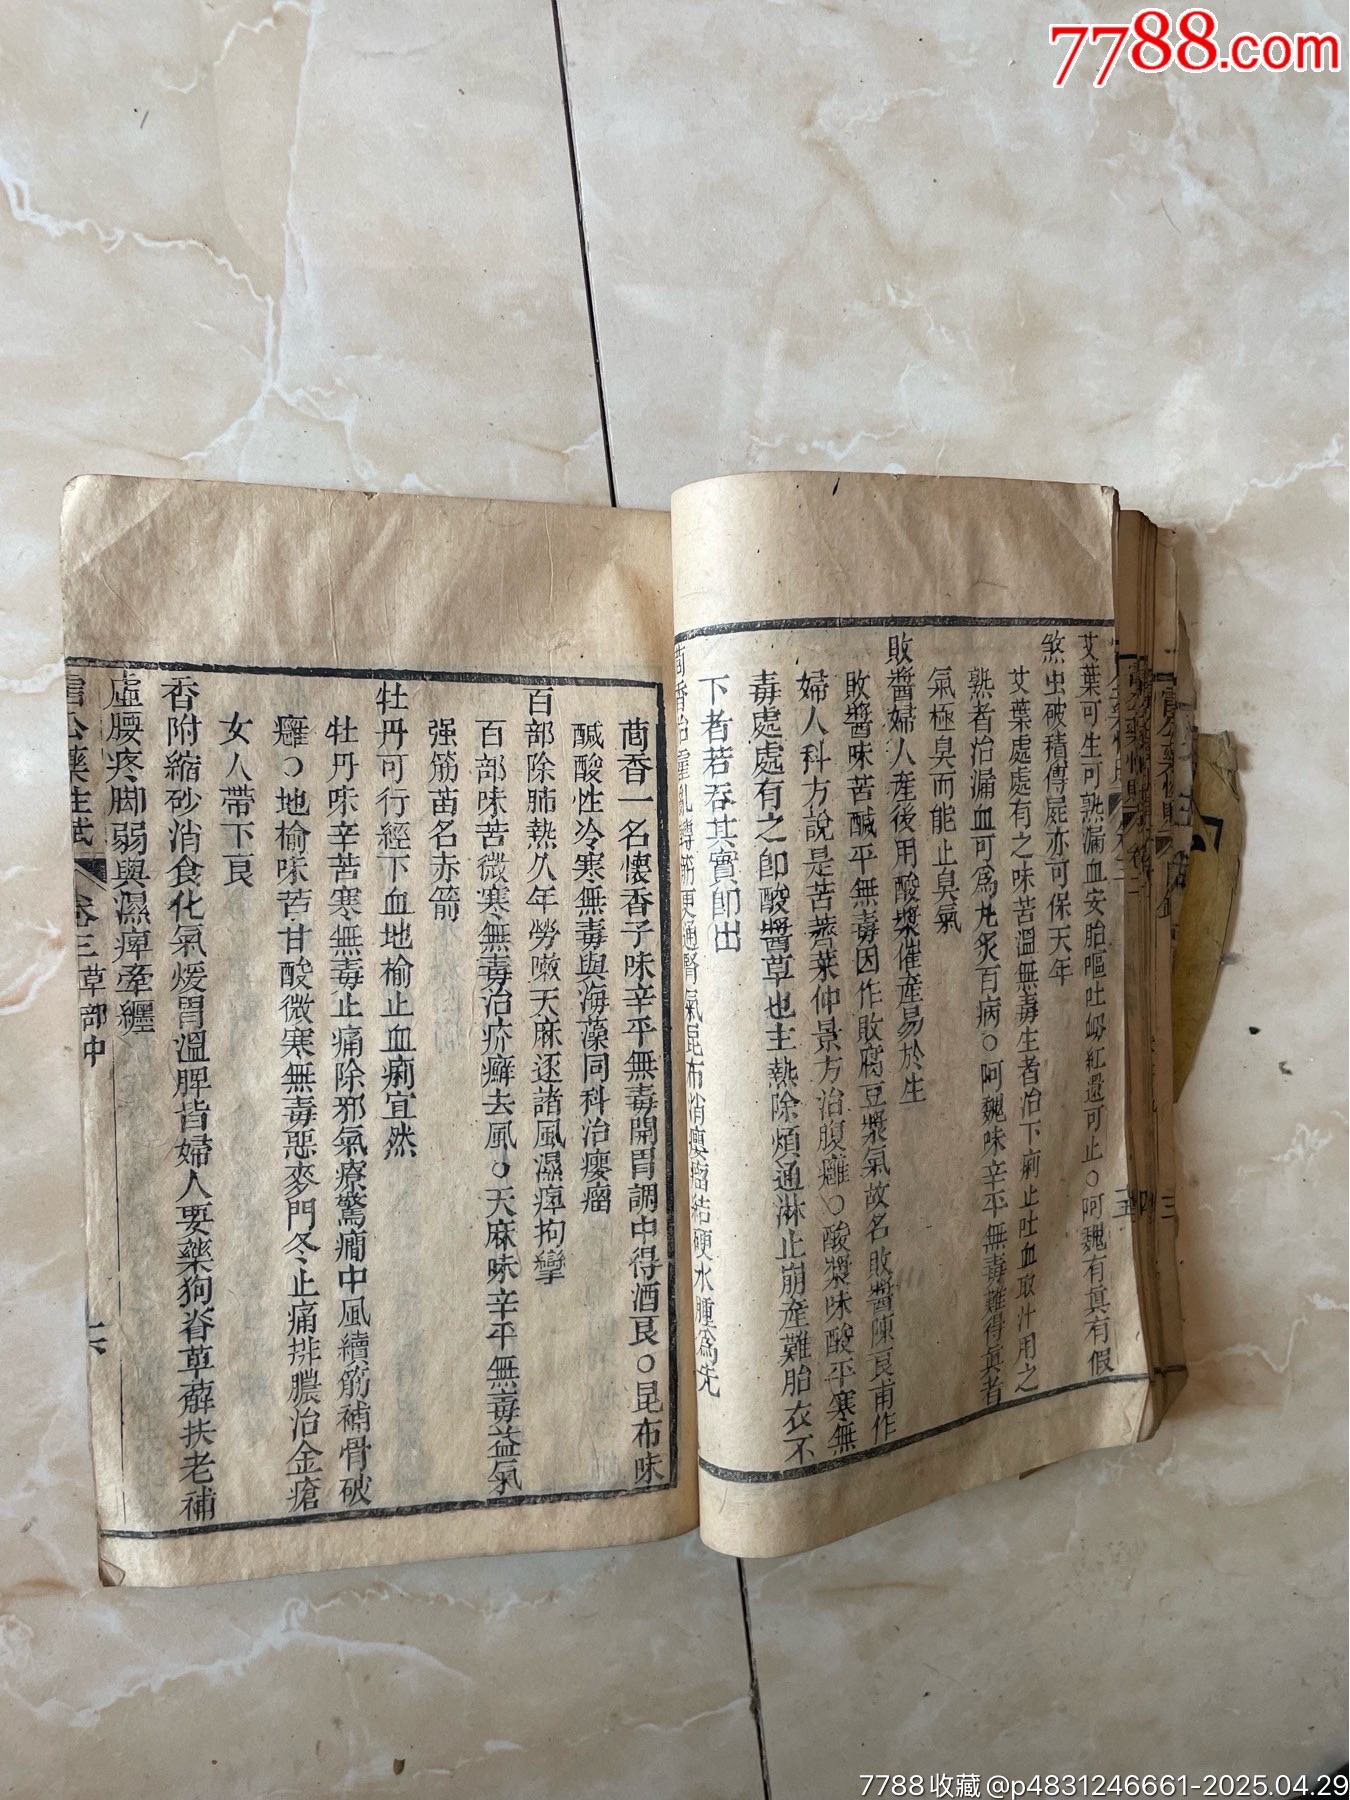 7788.com
艾葉可生可熟漏血安胎嘔吐衂紅還可止○阿魏有眞有假
煞虫破積傳屍亦可保天年
艾葉處處有之味苦溫無毒生者治下痢止吐血取汁用之
熟者治漏血可爲丸灸百病○阿魏味辛平無毒難得眞者
氣極臭而能止臭氣
敗醬婦人產後用酸漿催產易於生
敗醬味苦鹹平無毒因作敗腐豆漿氣故名敗醬陳良甫作
婦人科方說是苦蕒菜仲景方治腹癰○酸漿味酸平寒無
毒處處有之卽酸醬草也主熱除煩通淋止崩產難胎衣不
下者若吞其實卽出
茴香治霍亂轉筋更通腎氣昆布消癭瘤結硬水腫爲先
茴香一名懷香子味辛平無毒開胃調中得酒良○昆布味
鹹酸性冷寒無毒與海藻同科治癭瘤
百部除肺熱久年勞嗽天麻逐諸風濕痺拘攣
百部味苦微寒無毒治疥癬去風○天麻味辛平無毒益氣
强筋苗名赤箭
牡丹可行經下血地榆止血痢宜然
牡丹味辛苦寒無毒止痛除邪氣療驚癇中風續筋補骨破
癰○地榆味苦甘酸微寒無毒惡麥門冬止痛排膿治金瘡
女人帶下良
香附縮砂消食化氣煖胃溫脾皆婦人要藥狗脊萆薢扶老補
虛腰疼脚弱與濕痺牽纏
雷公藥性賦 卷三 草部中
7788收藏@p4831246661-2025.04.29